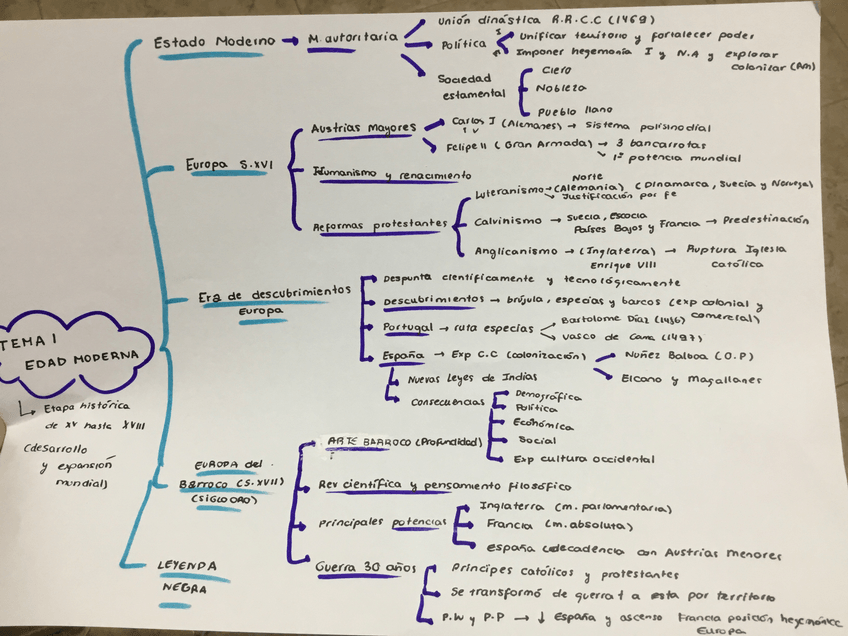 TEMA 1
EDAD MODERNA
Etapa histórica
de XV hasta XVIII
(desarrollo
y expansión
mundial)
Estado Moderno → M. autoritaria
Unión dinástica R.R.C.C (1469)
Política
Unificar territorio y fortalecer poder
Imponer hegemonía I y N.A y explorar
colonizar (Am)
Sociedad
estamental
Clero
Nobleza
Pueblo llano
Europa S.XVI
Austrias Mayores
Carlos I (Alemanes) → Sistema polisinodial
I V
Felipe II (Gran Armada) → 3 bancarrotas
1ª potencia mundial
Humanismo y renacimiento
Reformas protestantes
Norte
Luteranismo → (Alemania) (Dinamarca, Suecia y Noruega)
Justificación por fe
Calvinismo → Suecia, Escocia
Países Bajos y Francia → Predestinación
Anglicanismo → (Inglaterra) → Ruptura Iglesia
Enrique VIII católica
Era de descubrimientos
Europa
Despunta científicamente y tecnológicamente
Descubrimientos → brújula, especias y barcos (exp colonial y
comercial)
Portugal → ruta especias
Bartolome Díaz (1486)
Vasco de Gama (1497)
España → Exp C.C (colonización)
Nuñez Balboa (O.P)
Elcano y Magallanes
Nuevas Leyes de Indias
Consecuencias
Demográfica
Política
Económica
Social
Exp cultura occidental
EUROPA del
Barroco (S.XVII)
(SIGLO ORO)
ARTE BARROCO (Profundidad)
Rev científica y pensamiento filosófico
Principales potencias
Inglaterra (m. parlamentaria)
Francia (m. absoluta)
España (decadencia con Austrias menores
Guerra 30 años
Príncipes católicos y protestantes
Se transformó de guerra a esta por territorio
P.W y P.P → ↓ España y ascenso Francia posición hegemónica
Europa
LEYENDA
NEGRA